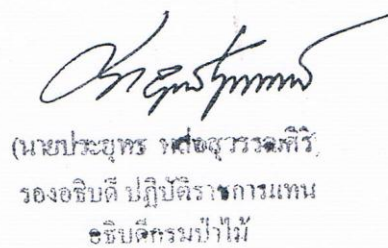 (นายประยุทธ
รองอธิบดี ปฏิบัติราชการแทน
อธิบดีกรมป่าไม้